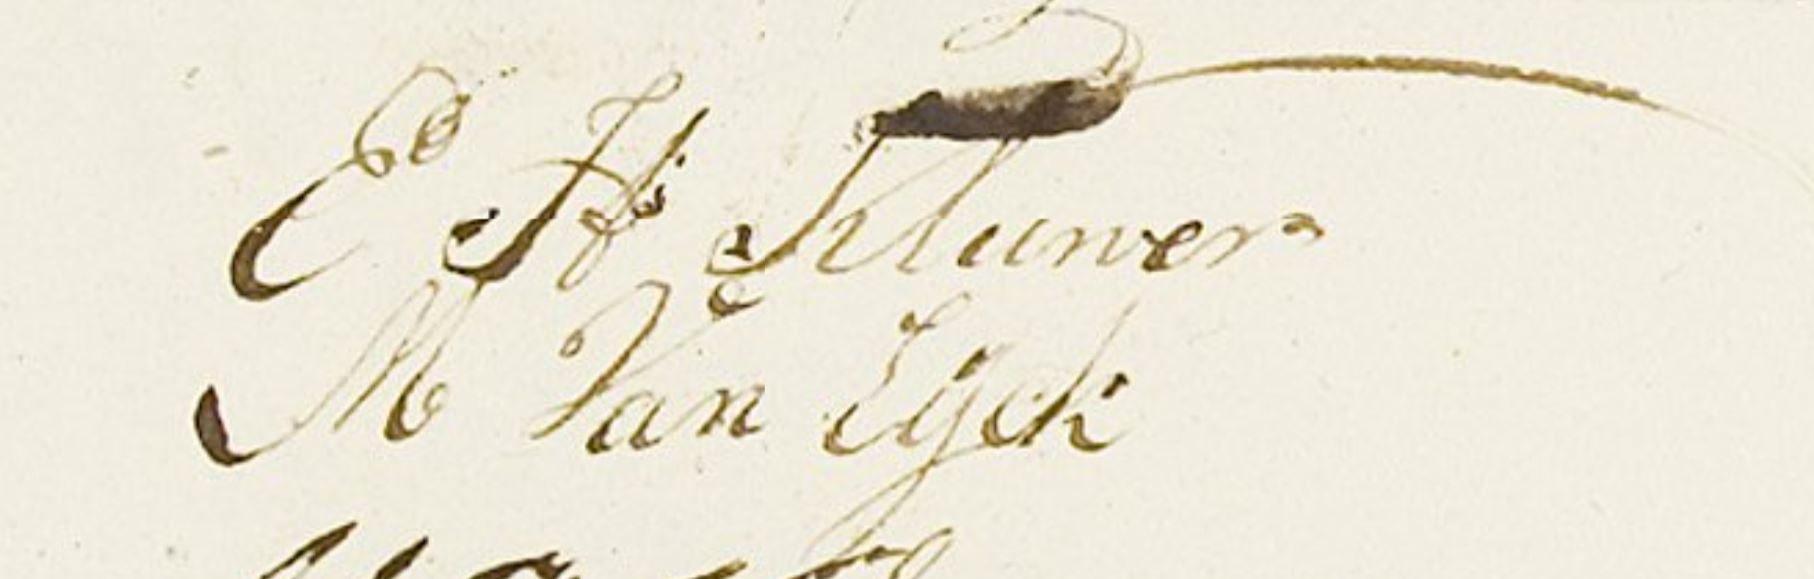 E H Kluwer
M Van Eyck